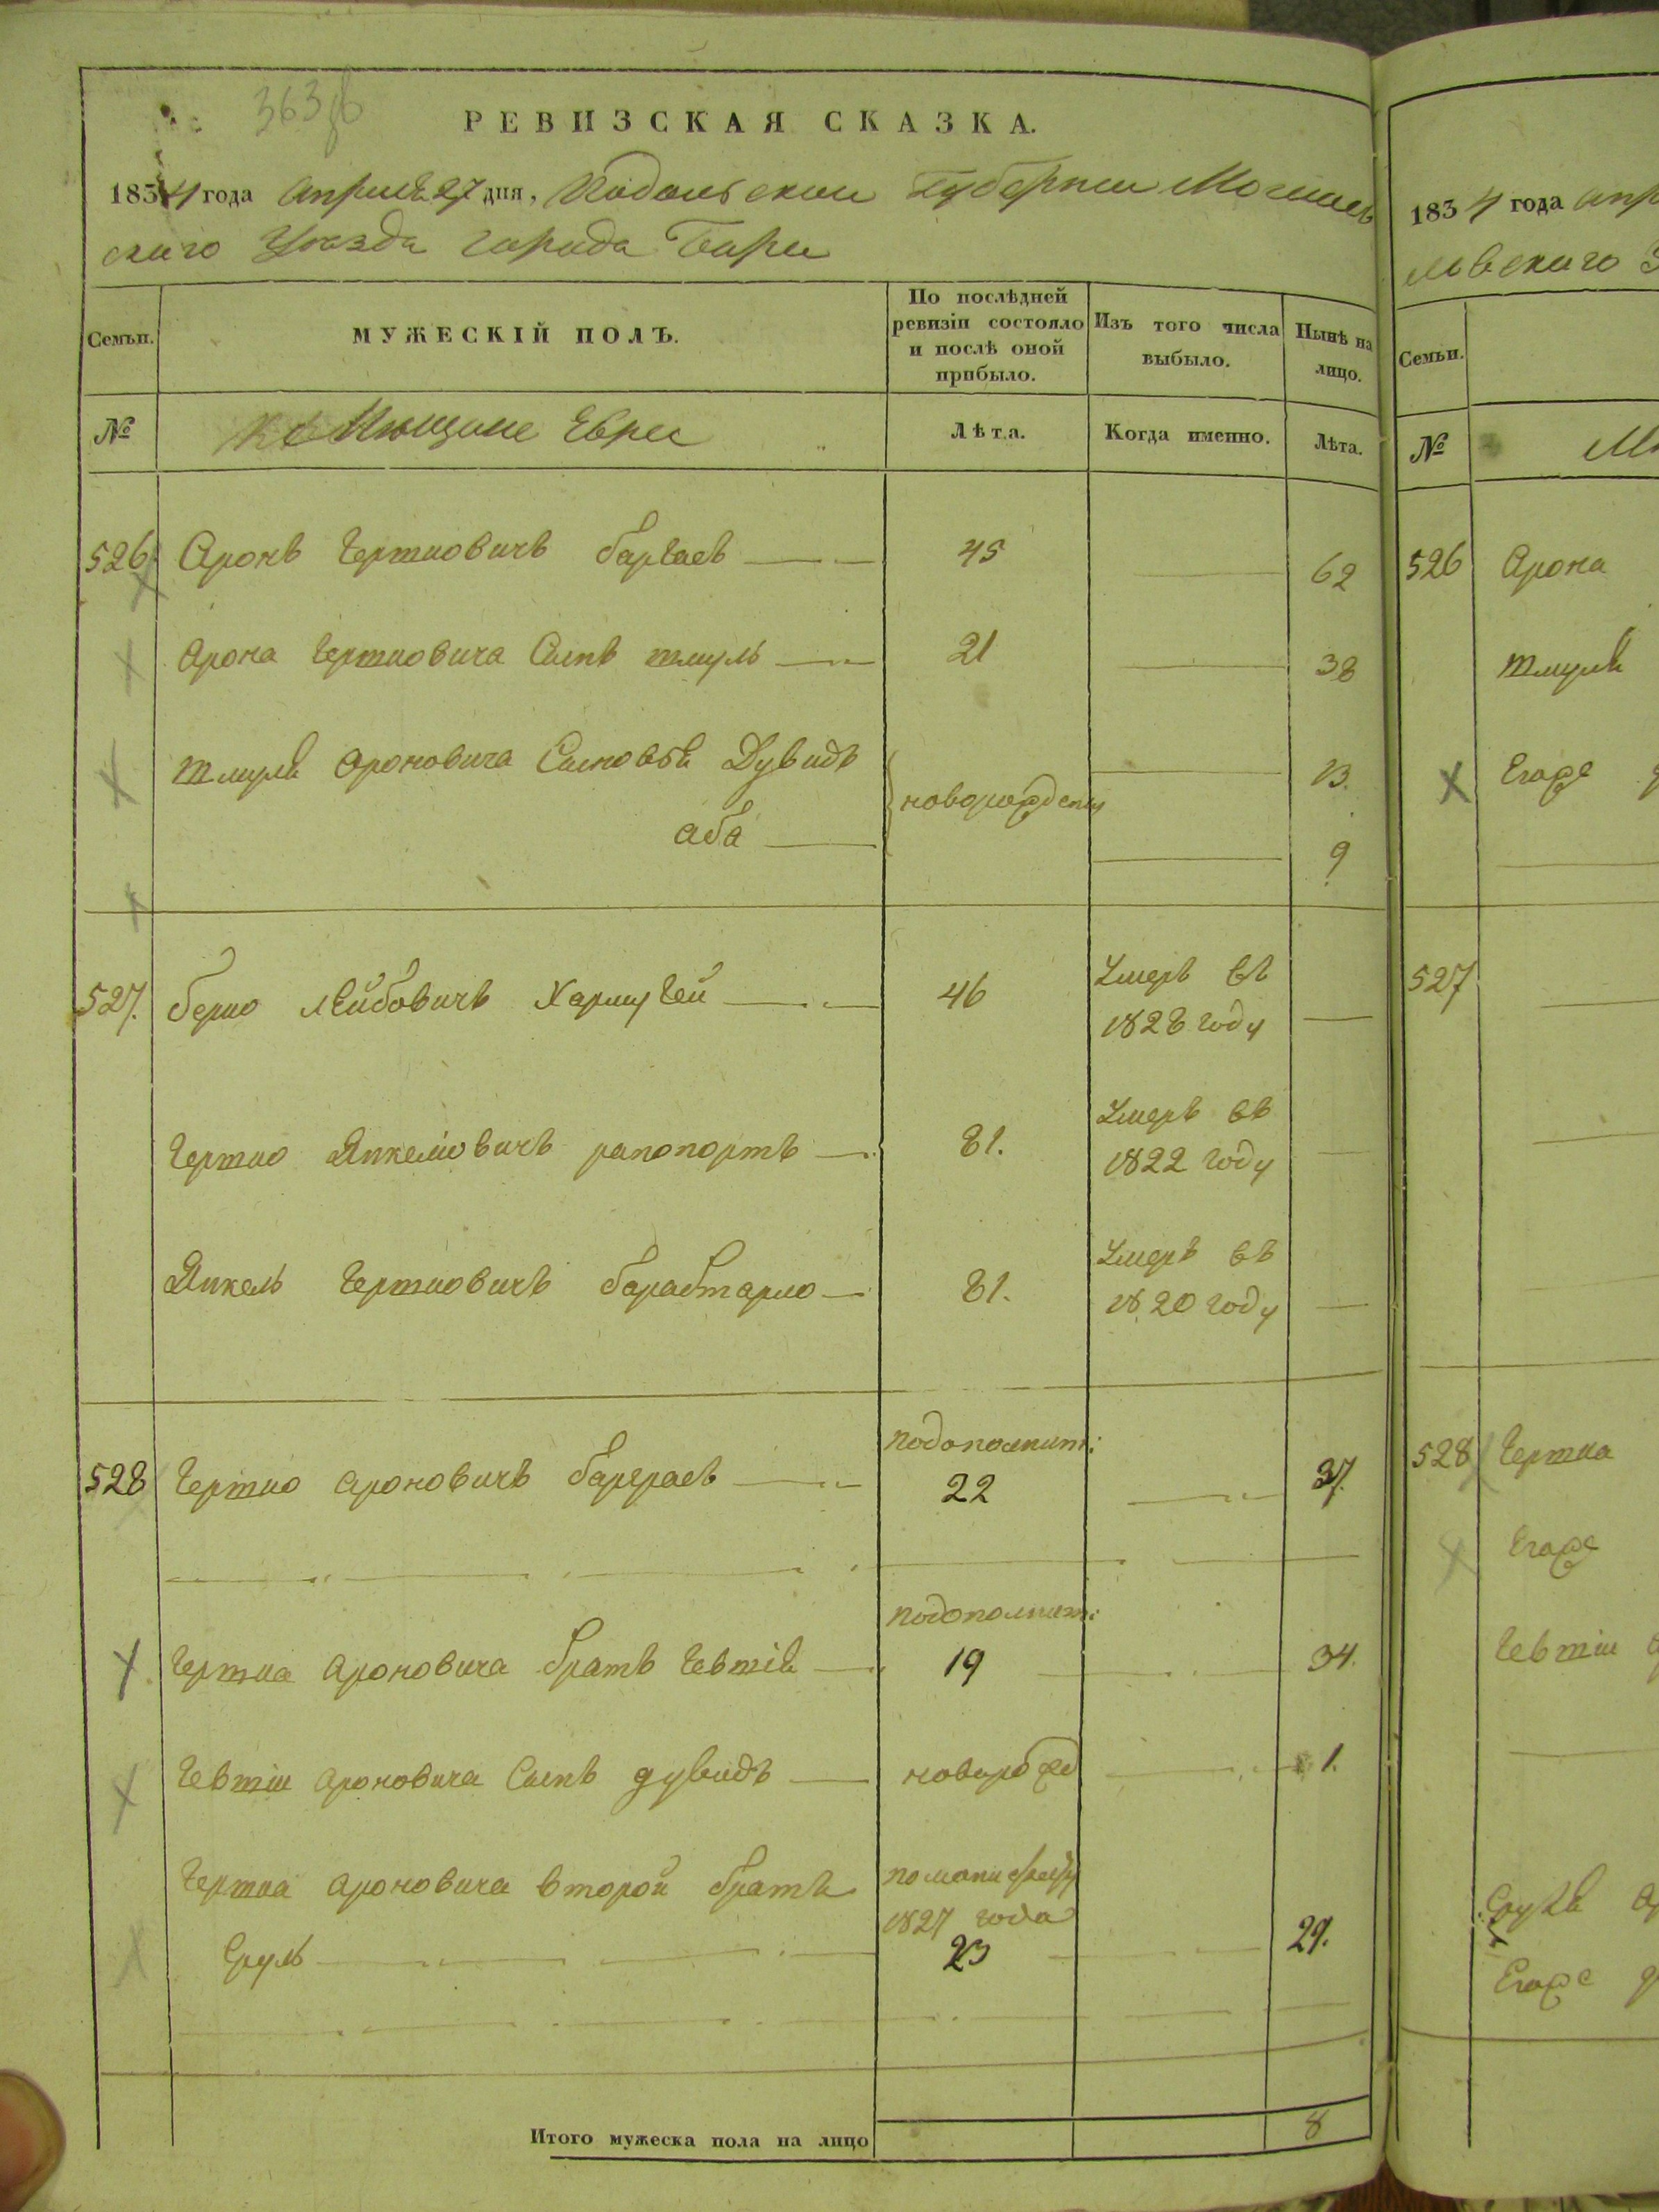 363 об
РЕВИЗСКАЯ СКАЗКА.
1834 года Апреля 27 дня, Подольской Губернии Могилев
скаго Уезда города Бара
Семьи.
МУЖЕСКІЙ ПОЛЪ.
По послѣдней ревизіи состояло и послѣ оной прибыло.
Изъ того числа выбыло.
Нынѣ на лицо.
№
Мещане Евреи
Лѣта.
Когда именно.
Лѣта.
526 Аронъ Гершковичъ 45 62
Арона Гершковича Сынъ Шмуль 21 38
Шмуля Ароновича Сыновья Дувидъ новорожденны 13.
аба 9
527. Берко Лейбовичъ 46 Умеръ въ
1828 году
Гершко Янкелювичъ рапопортъ 81. Умеръ въ
1822 году
Янкель Гершковичъ 81. Умеръ въ
1820 году
подополнит:
528 Гершко Ароновичъ 22 37.
подополнит:
Гершка Ароновича братъ 19 34.
Ароновича Сынъ дувидъ новорожд 1.
Гершка Ароновича второй братъ
1827 года
Сруль 23 29.
Итого мужеска пола на лицо 8
1834 года апр
львскаго
Семьи.
№
526 Арона
Шмуля
Егоже
527
528 Гершка
Егоже
Егоже